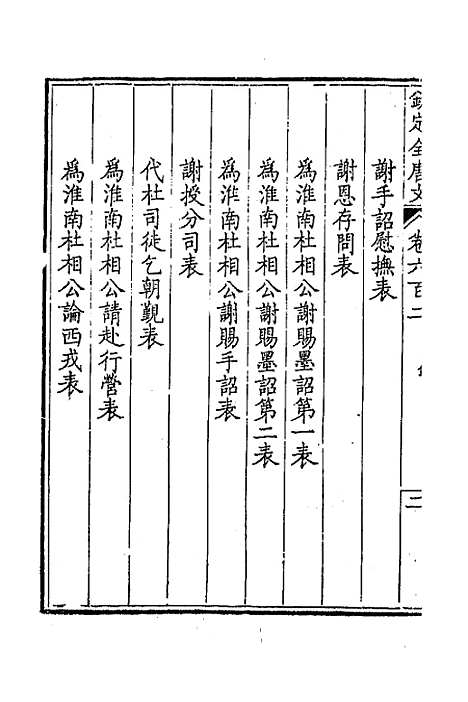 欽定全唐文 卷六百二 二
謝手詔慰撫表
謝恩存問表
為淮南杜相公謝賜墨詔第一表
為淮南杜相公謝賜墨詔第二表
為淮南杜相公謝賜手詔表
謝授分司表
代杜司徒乞朝覲表
為淮南杜相公請赴行營表
為淮南杜相公論西戎表